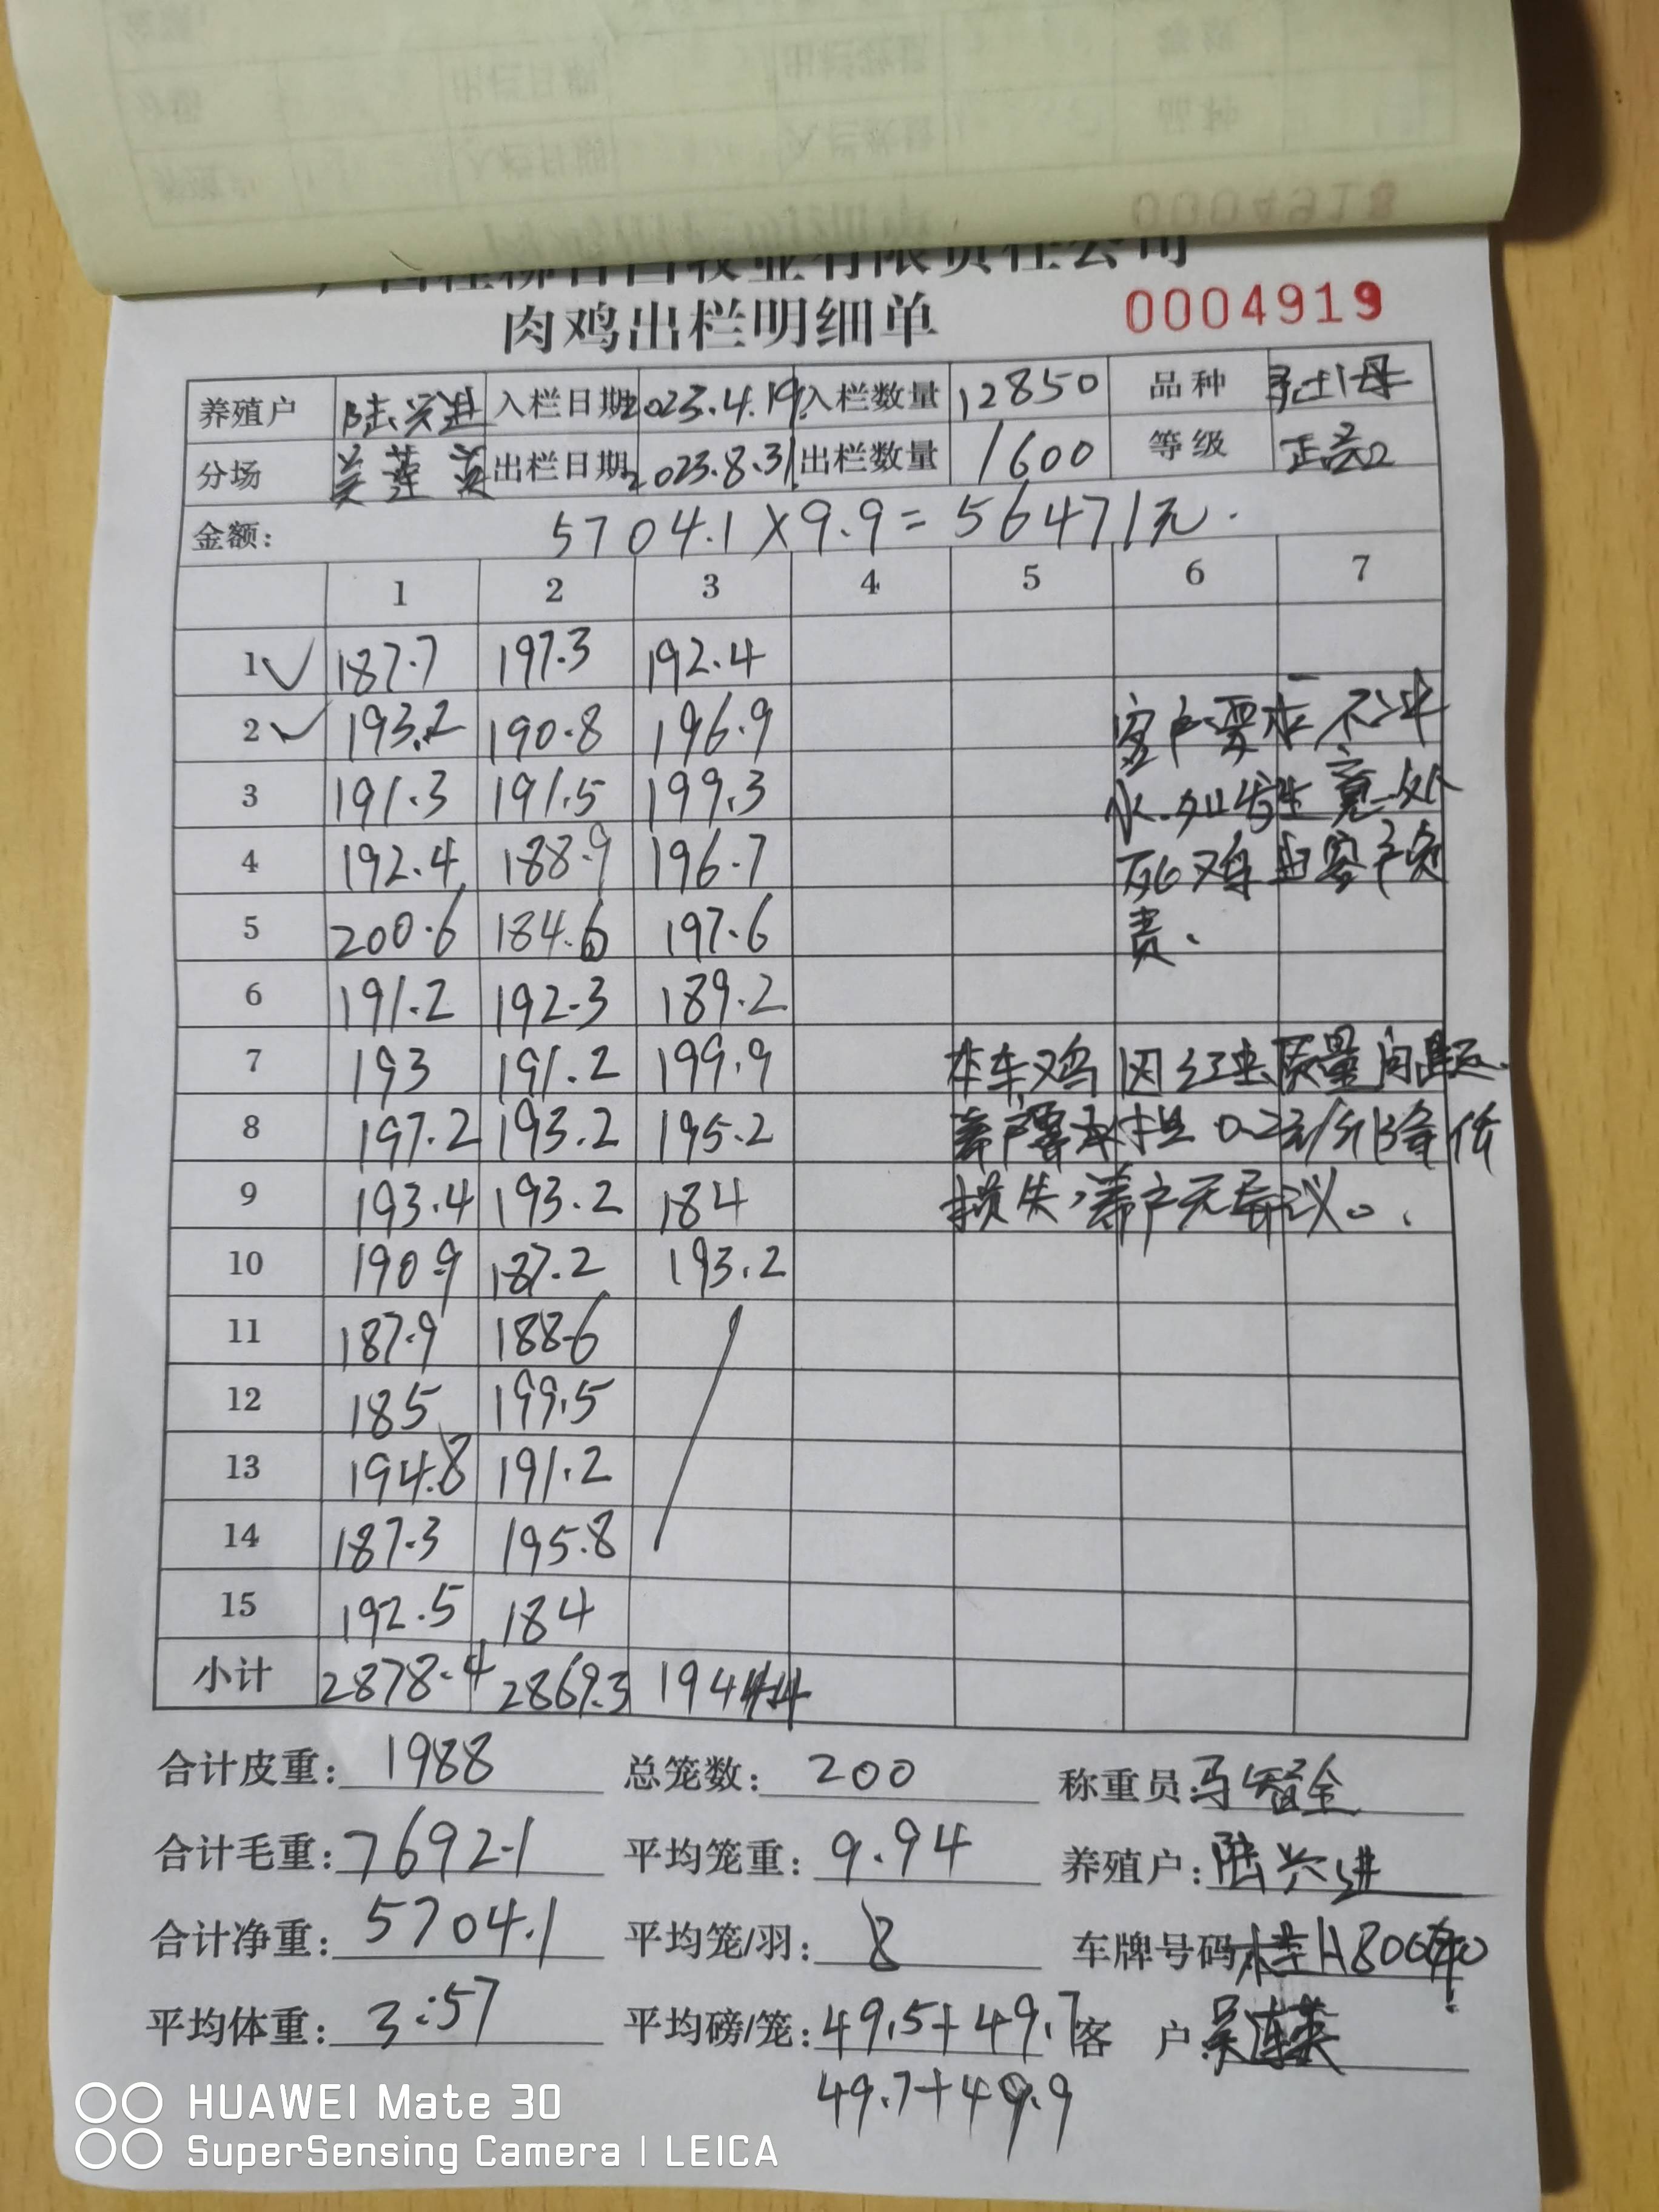 0004918
肉鸡出栏明细单
0004919
养殖户 陆兴进 入栏日期 2023.4.19. 入栏数量 12850 品种
分场 出栏日期 2023.8.31. 出栏数量 1600 等级 正品
金额: 5704.1×9.9=56471元.
1 2 3 4 5 6 7
1√ 187.7 197.3 192.4
2√ 193.2 190.8 196.9
3 191.3 191.5 199.3
4 192.4 188.9 196.7
5 200.6 184.6 197.6
6 191.2 192.3 189.2
7 193 191.2 199.9
8 197.2 193.2 195.2
9 193.4 193.2 184
10 190.9 187.2 193.2
11 187.9 188.6
12 185 199.5
13 194.8 191.2
14 187.3 195.8
15 192.5 184
小计 2878.4 2869.3
客户要求不冲
水.如发生意外
死鸡由客户负
责、
本车鸡因红虫质量问题.
养户需承担0.2元/斤降价
损失,养户无异议。.
合计皮重: 1988 总笼数: 200 称重员: 马智全
合计毛重: 7692.1 平均笼重: 9.94 养殖户: 陆兴进
合计净重: 5704.1 平均笼/羽: 8 车牌号码
平均体重: 3:57 平均磅/笼: 49.5+49.7 客 户: 吴连英
49.7+49.9
HUAWEI Mate 30
SuperSensing Camera | LEICA